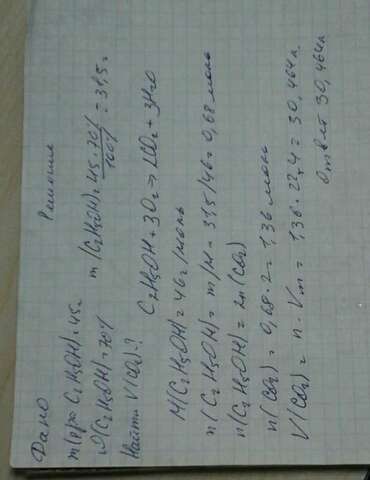 Дано
Решение
m(р-ра C₂H₅OH)=45г
ω(C₂H₅OH)=70%
Найти V(CO₂)?
m(C₂H₅OH)=45·70%/100%=31,5г
C₂H₅OH+3O₂=>2CO₂+3H₂O
M(C₂H₅OH)=46г/моль
n(C₂H₅OH)=m/M=31,5/46=0,68моль
n(C₂H₅OH)=2n(CO₂)
n(CO₂)=0,68·2=1,36моль
V(CO₂)=n·Vm=1,36·22,4=30,464л
Ответ 30,464л